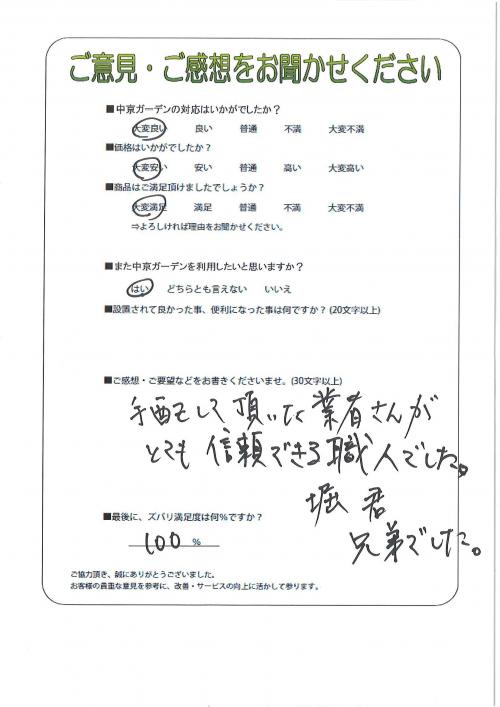 ご意見・ご感想をお聞かせください
■中京ガーデンの対応はいかがでしたか？
大変良い 良い 普通 不満 大変不満
■価格はいかがでしたか？
大変安い 安い 普通 高い 大変高い
■商品はご満足頂けましたでしょうか？
大変満足 満足 普通 不満 大変不満
⇒よろしければ理由をお聞かせください。
■また中京ガーデンを利用したいと思いますか？
はい どちらとも言えない いいえ
■設置されて良かった事、便利になった事は何ですか？(20文字以上)
■ご感想・ご要望などをお書きくださいませ。(30文字以上)
手配をして頂いた業者さんが
とても信頼できる職人でした。
堀君
兄弟でした。
■最後に、ズバリ満足度は何％ですか？
100 %
ご協力頂き、誠にありがとうございました。
お客様の貴重な意見を参考に、改善・サービスの向上に活かして参ります。